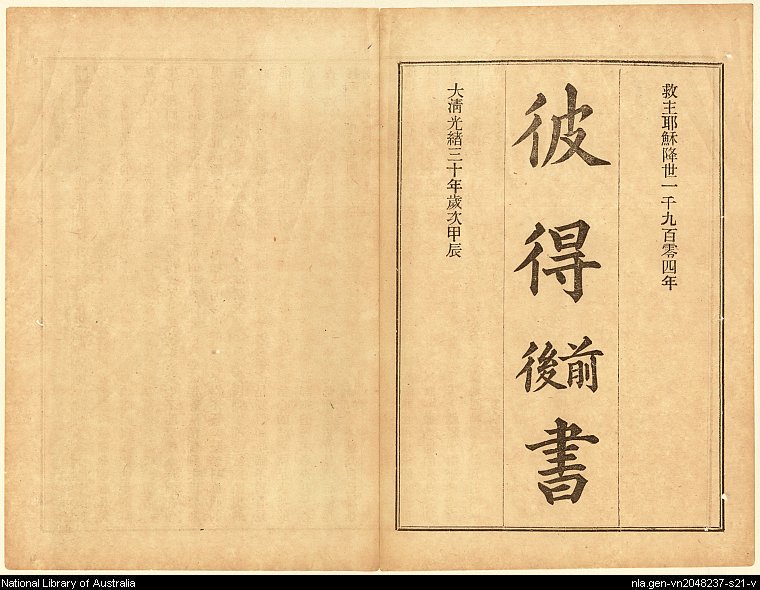 救主耶穌降世一千九百零四年
彼得前後書
大清光緒三十年歲次甲辰
National Library of Australia
nla.gen-vn2048237-s21-v